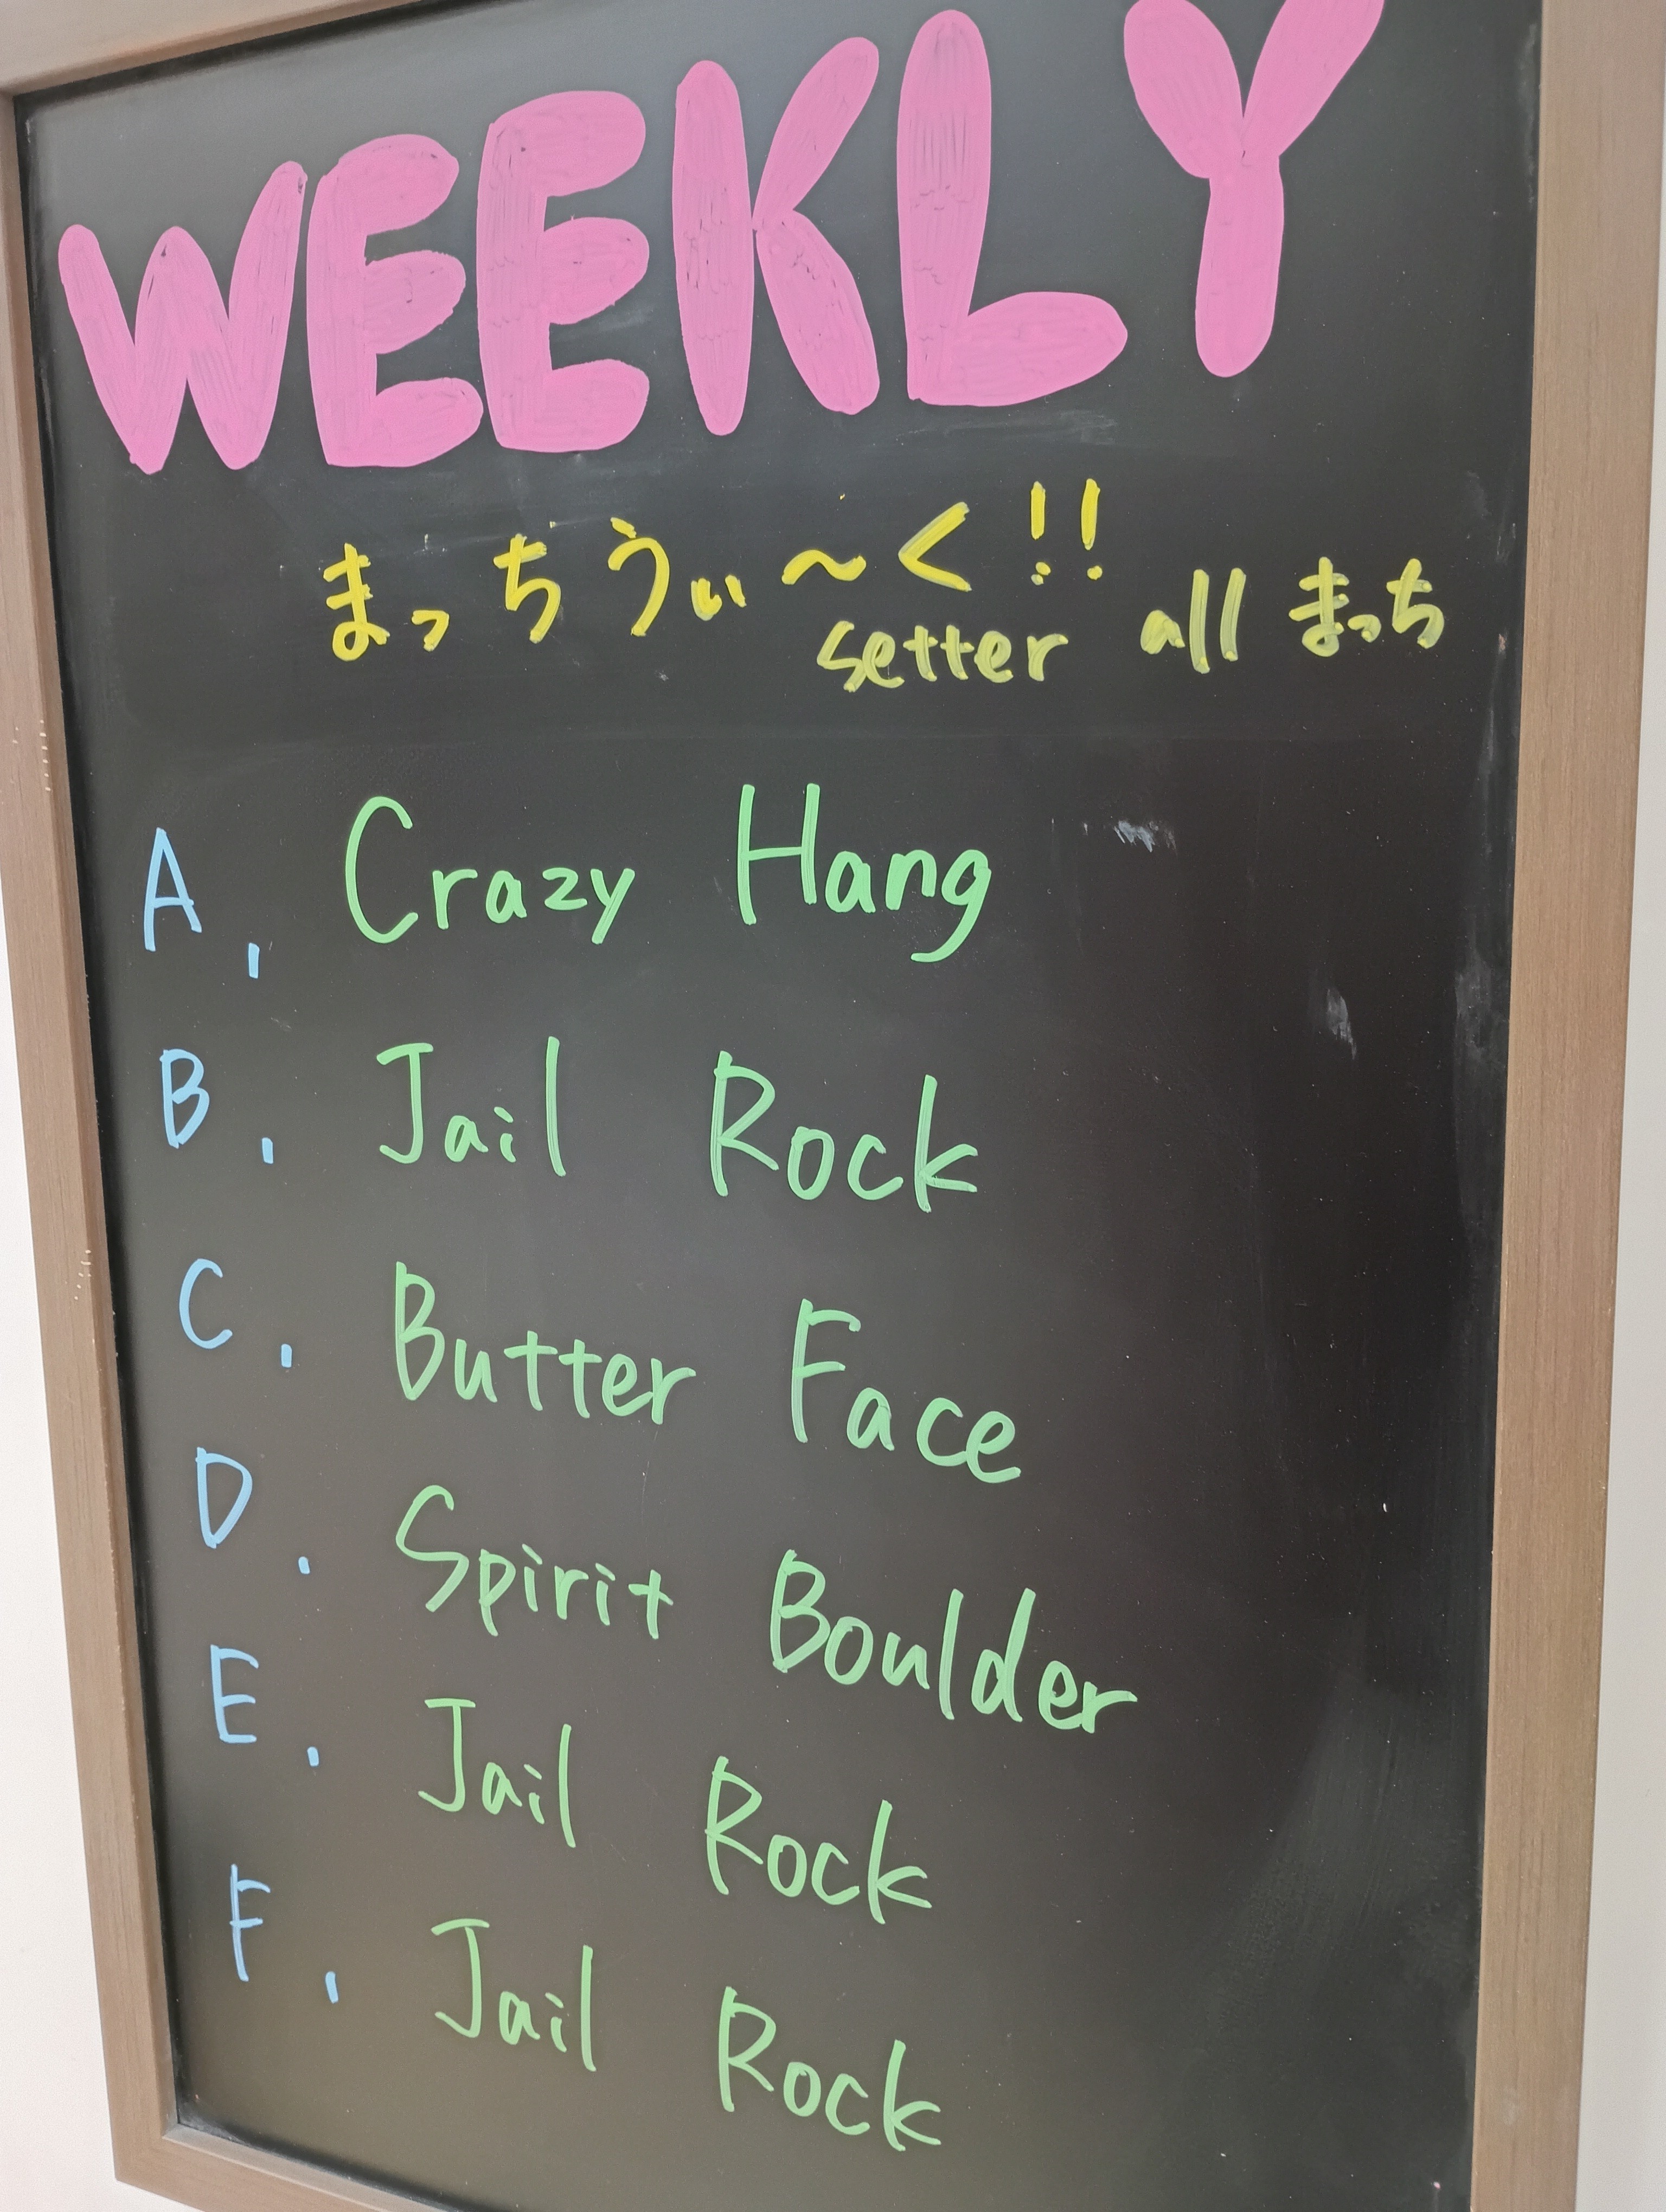 WEEKLY
まっちうぃ～く!!
setter all まっち
A. Crazy Hang
B. Jail Rock
C. Butter Face
D. Spirit Boulder
E. Jail Rock
F. Jail Rock